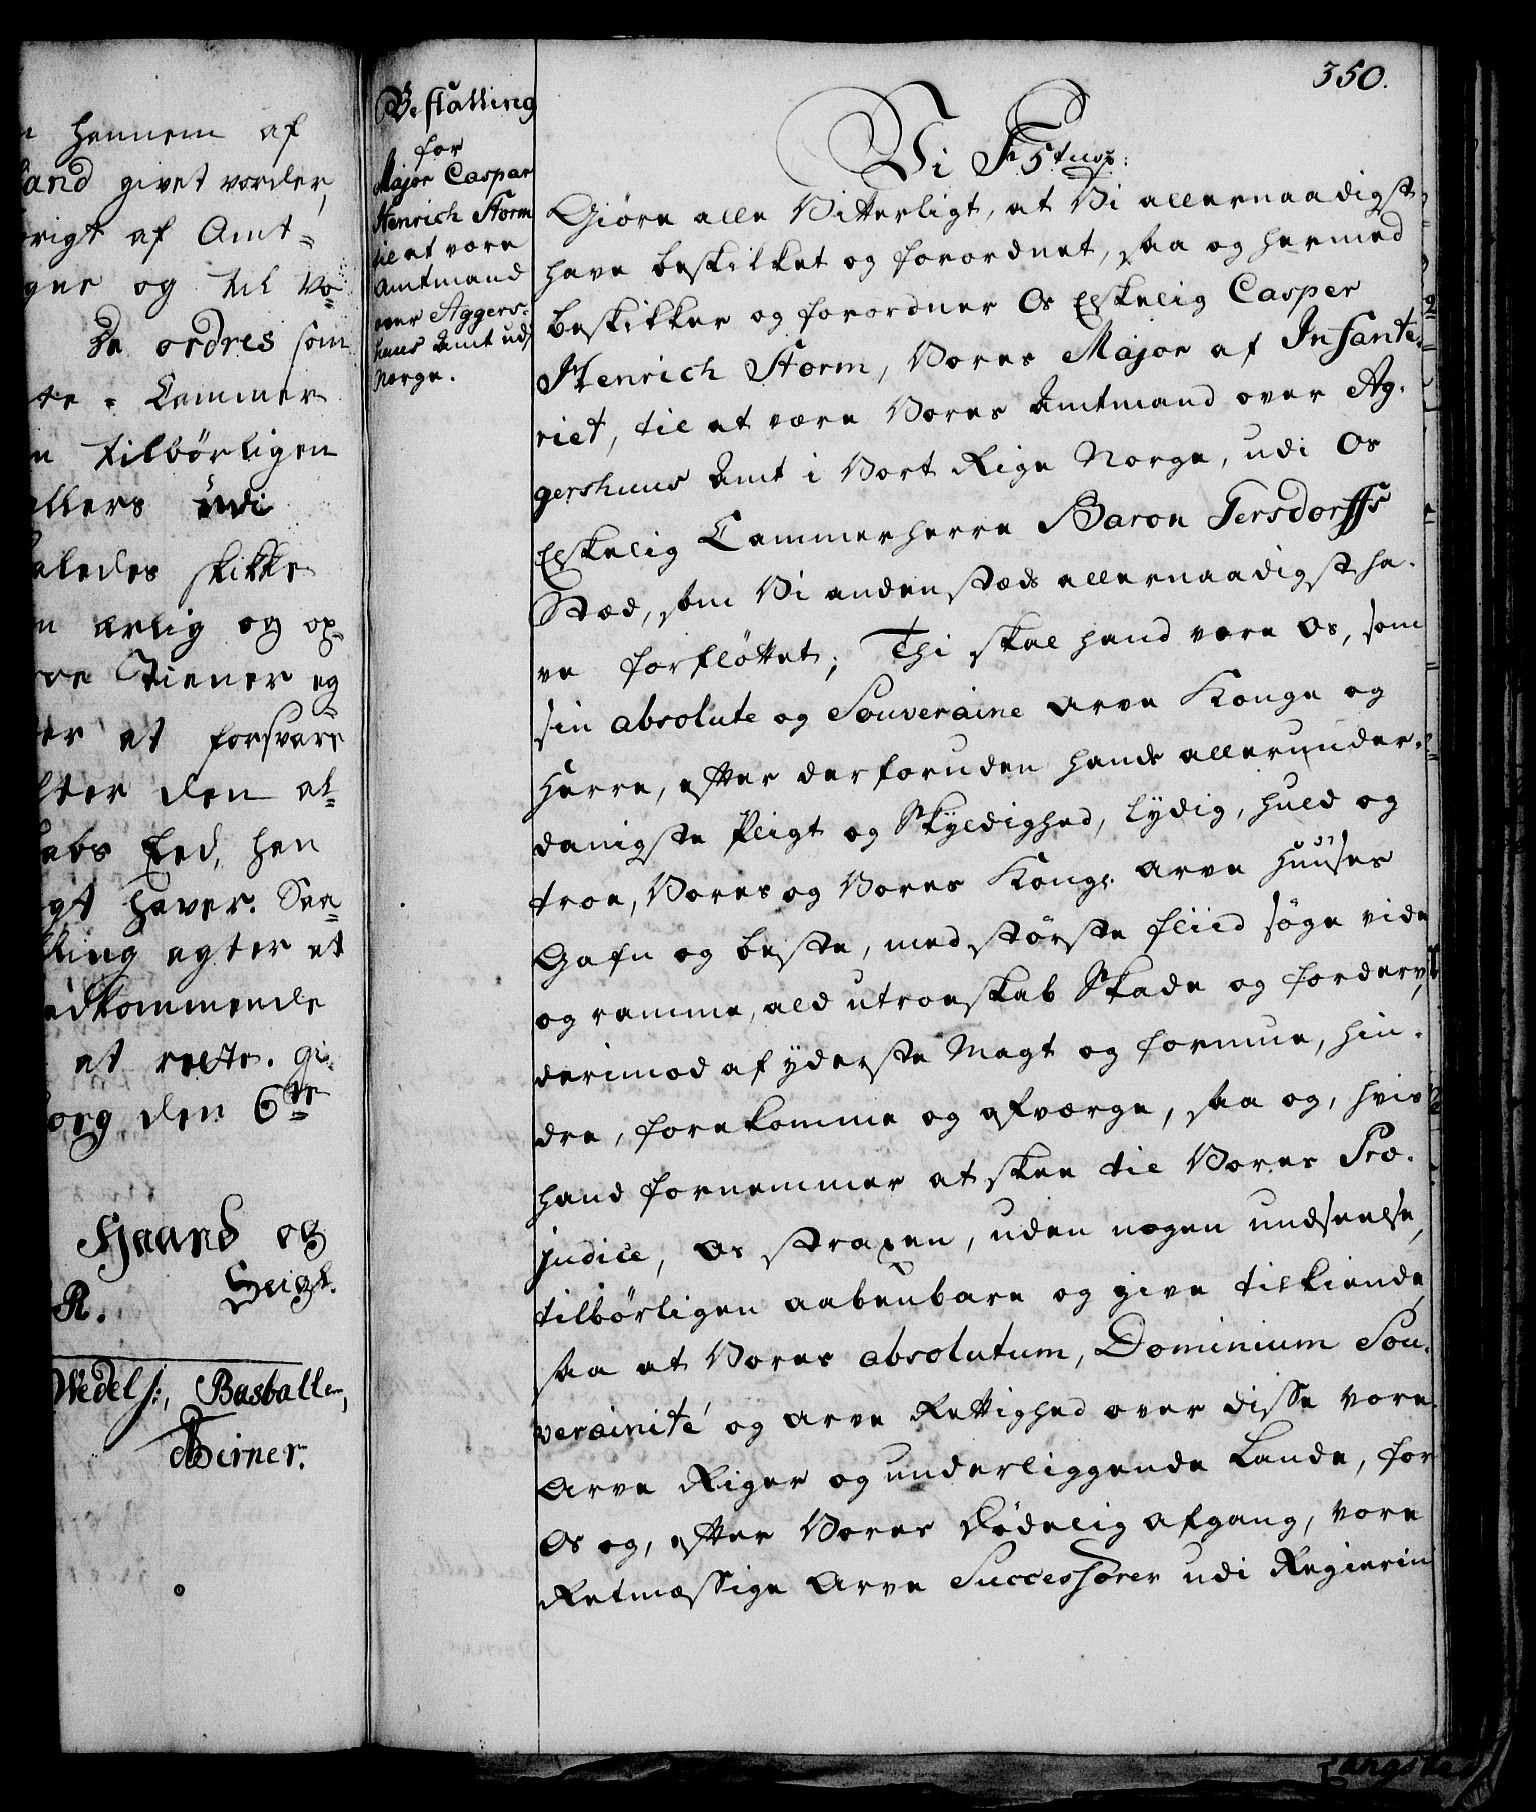 hannem af
and givet vorder,
rigt af Amt=
gne og til Vo=
De ordres som
te = Cammer
n tilbørligen
ellers udi
aledes skikke
n ærlig og op=
re Tiener eg
er at forsvare
lter den al=
abs Eed, han
gt haver. Saa=
lling agter at
edkommende
at rette. gi=
org den 6te
Haand og
R. Seigl.
Wedel s:, Busballe,
Birner.
350.
Bestalling
for
Major Caspar
Henrich Storm
til at være
Amtmand
over Aggers=
huus Amt udj
Norge.
Vi F 5tus:
Giøre alle Vitterligt, at Vi allernaadigst
have beskikket og forordnet, saa og hermed
beskikker og forordner Os Elskelig Casper
Henrich Storm, Vores Major af Infante=
riet, til at være Vores Amtmand over Ag=
gershuus Amt i Vort Rige Norge, udi Os
Elskelig Cammerherre Baron Gersdorffs
Stæd, som Vi andenstæds allernaadigst ha=
ve forfløttet; Thi skal hand være Os, som
sin absolute og Souveraine Arve Konge og
Herre, efter derforuden hands allerunder=
danigste Pligt og Skyldighed, lydig, huld og
troe, Vores og Vores Kongl: Arve Huuses
Gafn og beste, med største fliid søge vide
og ramme, ald utroeskab Skade og fordærv,
derimod af yderste Magt og formue, hin=
dre, forekomme og afværge, saa og, hvis
hand fornemmer at skee til Vores Præ=
judice, Os straxen, uden nogen undseelse,
tilbørligen aabenbare og give tilkiende,
saa at Vores absolutum, Dominium Sou=
verainité og Arve Rettighed over disse Vore
Arve Riger og underliggende Lande, for
Os og, efter Vores dødelig afgang, Vore
Retmæssige Arve Successorer udi Regierin